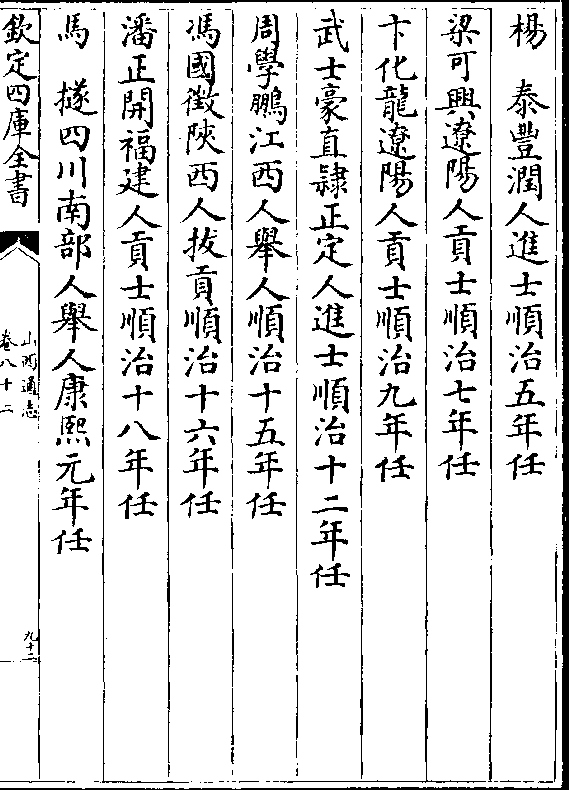 楊　泰豐潤人進士順治五年任
梁可興遼陽人貢士順治七年任
卞化龍遼陽人貢士順治九年任
武士豪直隷正定人進士順治十二年任
周學鵬江西人舉人順治十五年任
馮國徵陜西人拔貢順治十六年任
潘正開福建人貢士順治十八年任
馬　㩞四川南部人舉人康熙元年任
欽定四庫全書
山西通志
卷八十二
九十二